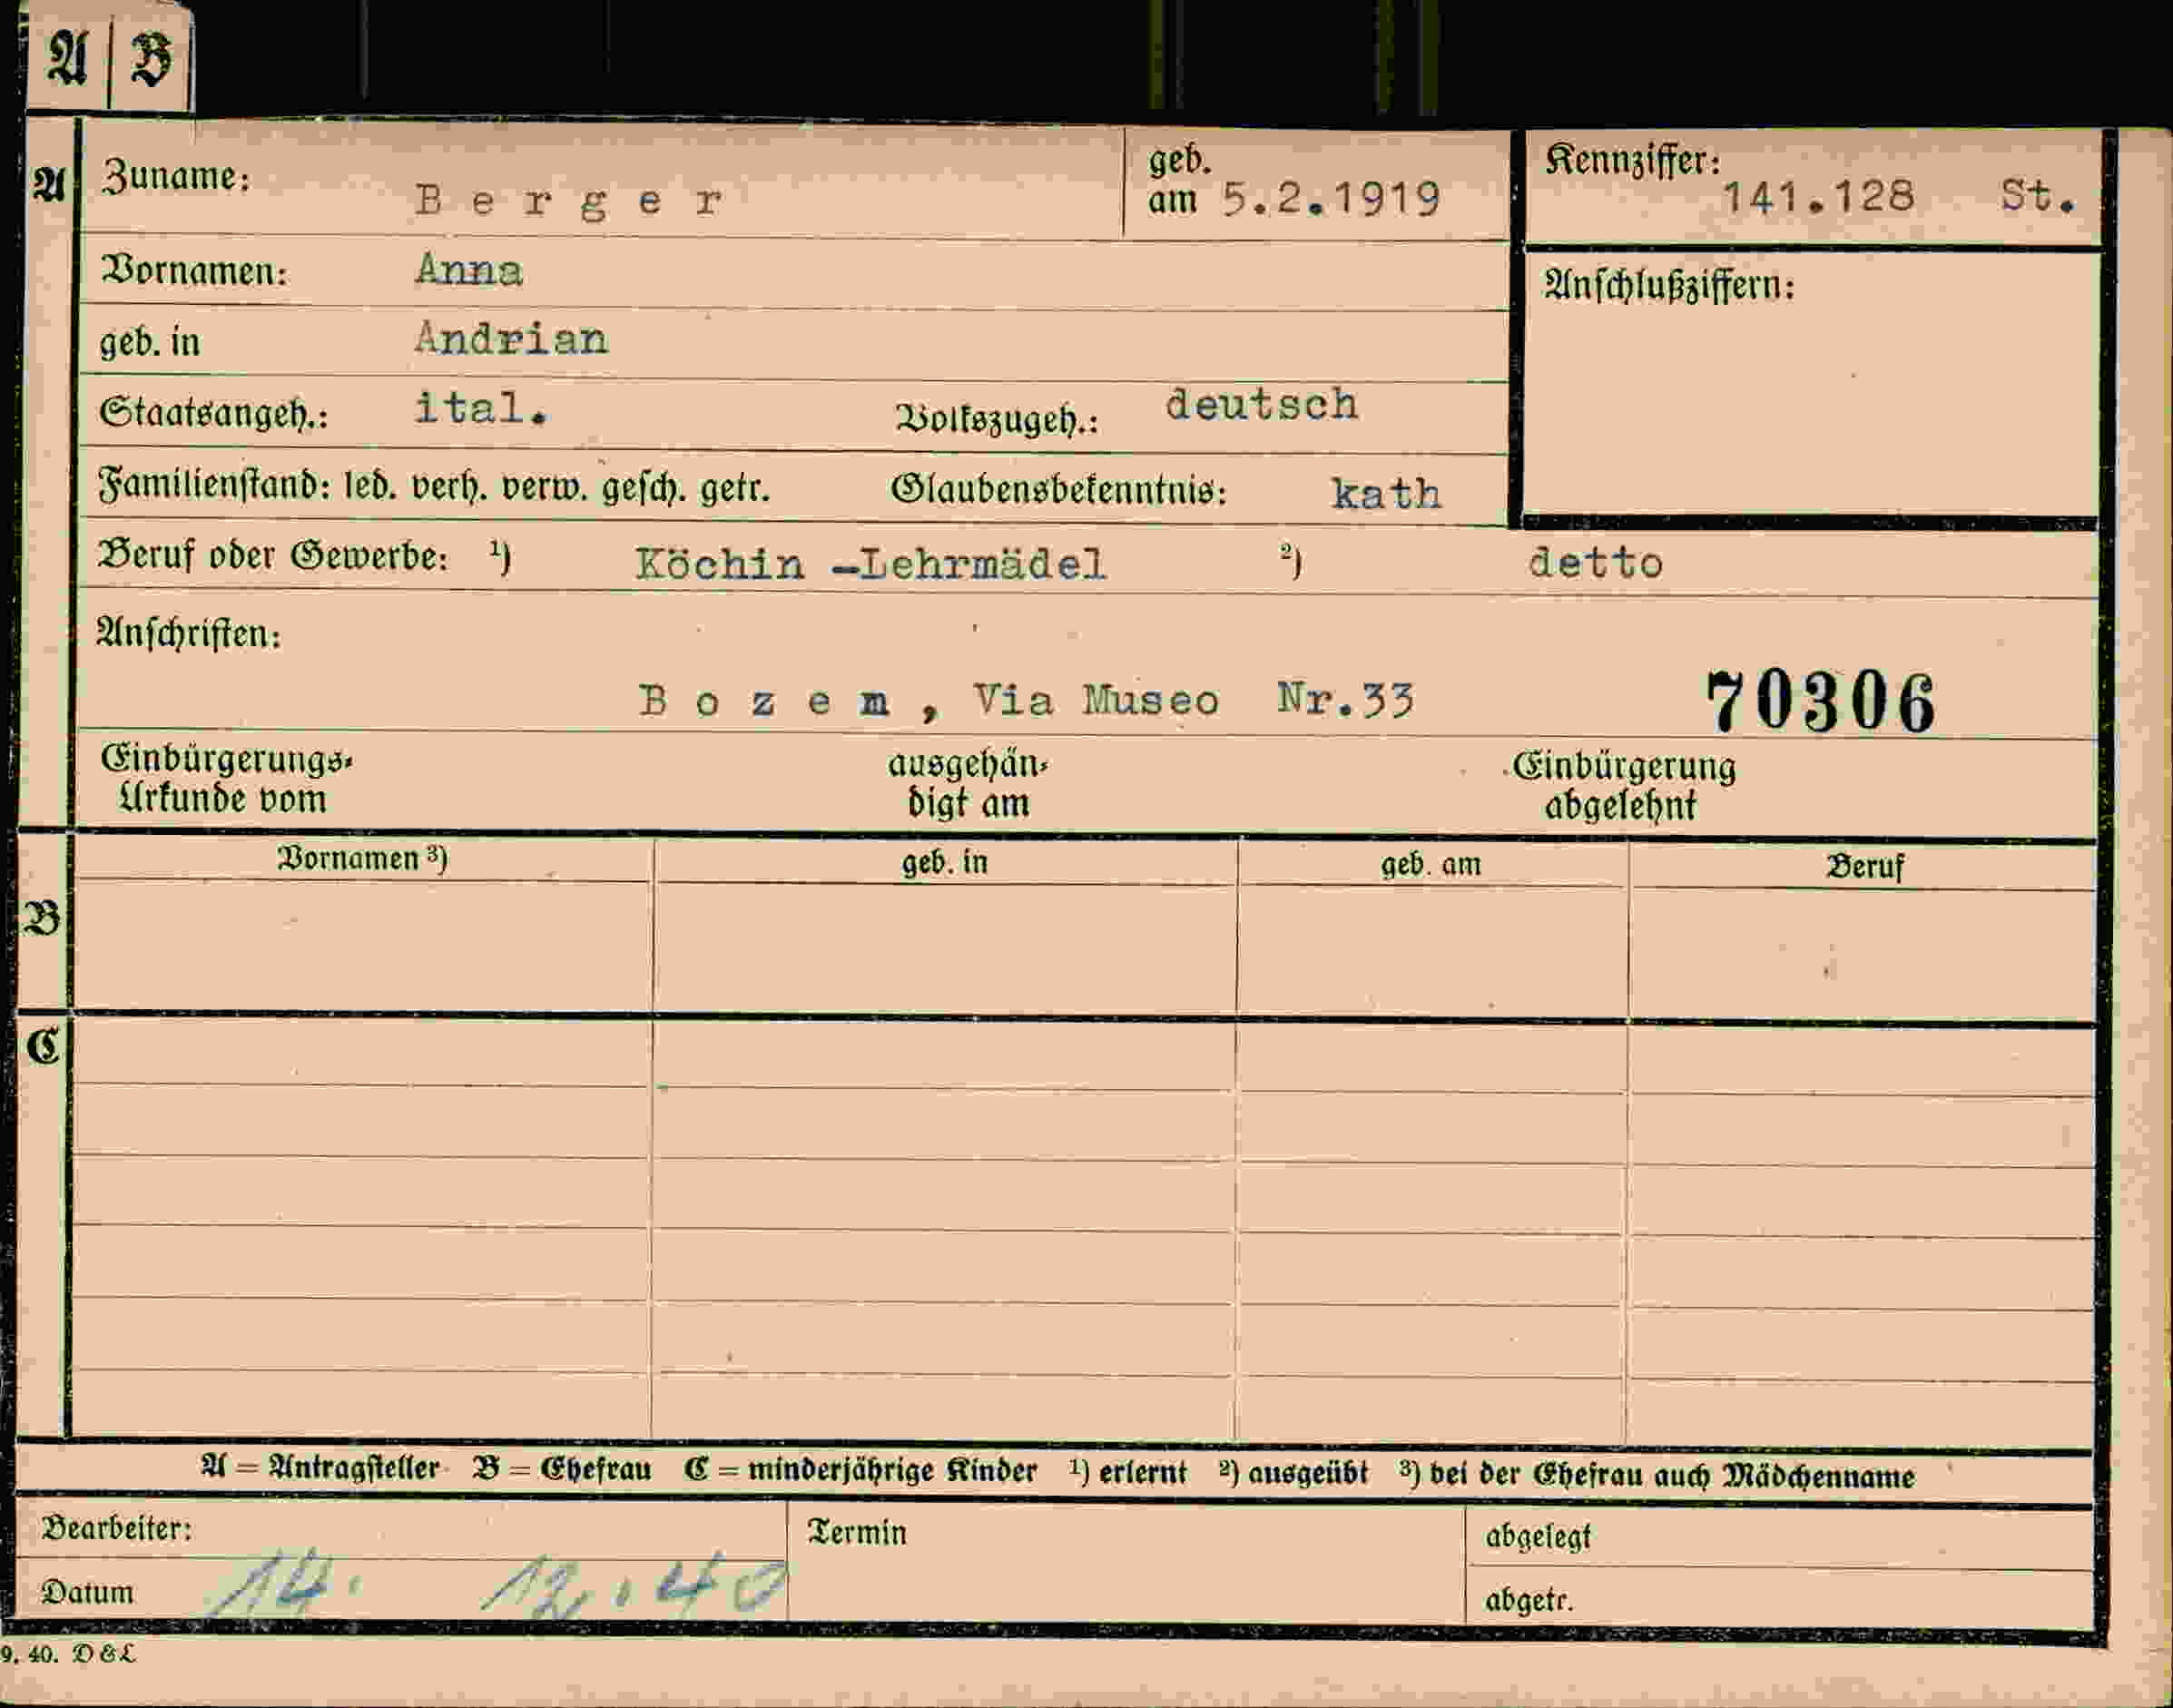 A B
A Zuname: Berger geb. am 5.2.1919 Kennziffer: 141.128 St.
Vornamen: Anna Anschlußziffern:
geb. in Andrian
Staatsangeh.: ital. Volkszugeh.: deutsch
Familienstand: led. verh. verw. gesch. getr. Glaubensbekenntnis: kath
Beruf oder Gewerbe: ¹) Köchin -Lehrmädel ²) detto
Anschriften:
Bozen, Via Museo Nr.33 70306
Einbürgerungs- ausgehän- Einbürgerung
Urkunde vom digt am abgelehnt
Vornamen ³) geb. in geb. am Beruf
B
C
A = Antragsteller B = Ehefrau C = minderjährige Kinder ¹) erlernt ²) ausgeübt ³) bei der Ehefrau auch Mädchenname
Bearbeiter: Termin abgelegt
Datum 14. 12. 40 abgetr.
9. 40. D & L